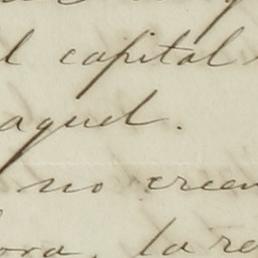 l capital
aquel.
no creen
ora, la re